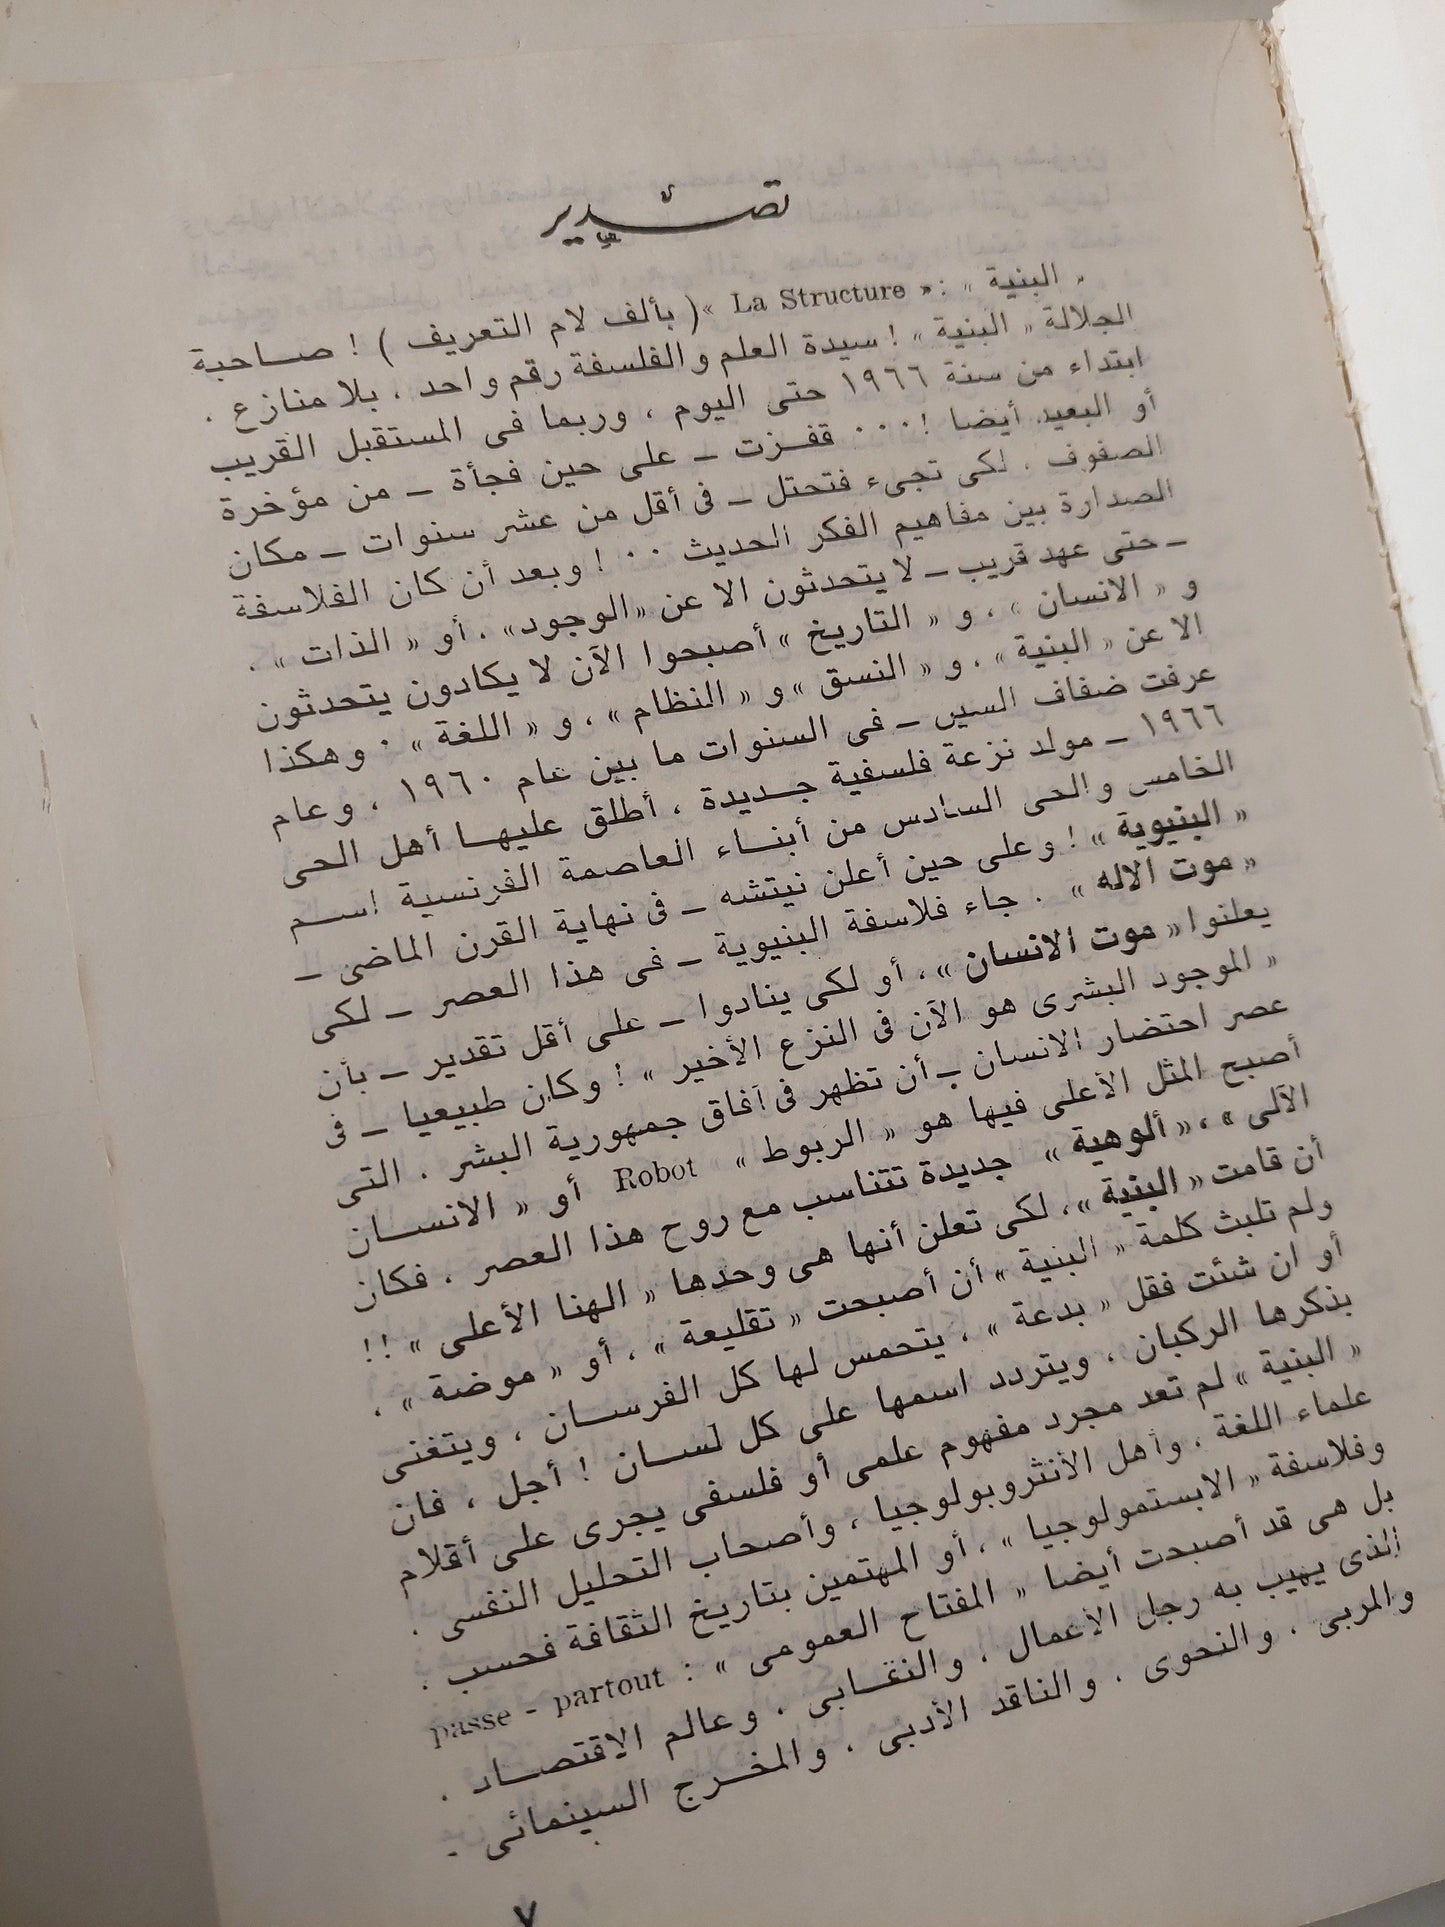 تصدير
« البنية » : « La Structure » ( بألف لام التعريف ) ! صاحبة
الجلالة « البنية » ! سيدة العلم والفلسفة رقم واحد ، بلا منازع ،
ابتداء من سنة ١٩٦٦ حتى اليوم ، وربما فى المستقبل القريب
أو البعيد أيضا ! ٠٠٠ قفزت ــ على حين فجأة ــ من مؤخرة
الصفوف ، لكى تجىء فتحتل ــ فى أقل من عشر سنوات ــ مكان
الصدارة بين مفاهيم الفكر الحديث ٠٠ ! وبعد أن كان الفلاسفة
ــ حتى عهد قريب ــ لا يتحدثون الا عن «الوجود» ، أو « الذات » ،
و « الانسان » ، و « التاريخ » أصبحوا الآن لا يكادون يتحدثون
الا عن « البنية » ، و « النسق » و « النظام » ، و « اللغة » ٠ وهكذا
عرفت ضفاف السين ــ فى السنوات ما بين عام ١٩٦٠ ، وعام
١٩٦٦ ــ مولد نزعة فلسفية جديدة ، أطلق عليها أهل الحى
الخامس والحى السادس من أبناء العاصمة الفرنسية اسم
« البنيوية » ! وعلى حين أعلن نيتشه ــ فى نهاية القرن الماضى ــ
« موت الاله » ٠ جاء فلاسفة البنيوية ــ فى هذا العصر ــ لكى
يعلنوا « موت الانسان » ، أو لكى ينادوا ــ على أقل تقدير ــ بأن
« الموجود البشرى هو الآن فى النزع الأخير » ! وكان طبيعيا ــ فى
عصر احتضار الانسان ــ أن تظهر فى آفاق جمهورية البشر ، التى
أصبح المثل الأعلى فيها هو « الربوط » Robot أو « الانسان
الآلى » ، « ألوهية » جديدة تتناسب مع روح هذا العصر ، فكان
أن قامت « البنية » ، لكى تعلن أنها هى وحدها « الهنا الأعلى » !!
ولم تلبث كلمة « البنية » أن أصبحت « تقليعة » ، أو « موضة » ،
أو ان شئت فقل « بدعة » ، يتحمس لها كل الفرسان ، ويتغنى
بذكرها الركبان ، ويتردد اسمها على كل لسان ! أجل ، فان
« البنية » لم تعد مجرد مفهوم علمى أو فلسفى يجرى على أقلام
علماء اللغة ، وأهل الأنثروبولوجيا ، وأصحاب التحليل النفسى ،
وفلاسفة « الابستمولوجيا » ، أو المهتمين بتاريخ الثقافة فحسب ،
بل هى قد أصبحت أيضا « المفتاح العمومى » : passe - partout
الذى يهيب به رجل الأعمال ، والنقابى ، وعالم الاقتصاد ،
والمربى ، والنحوى ، والناقد الأدبى ، والمخرج السينمائى
٧